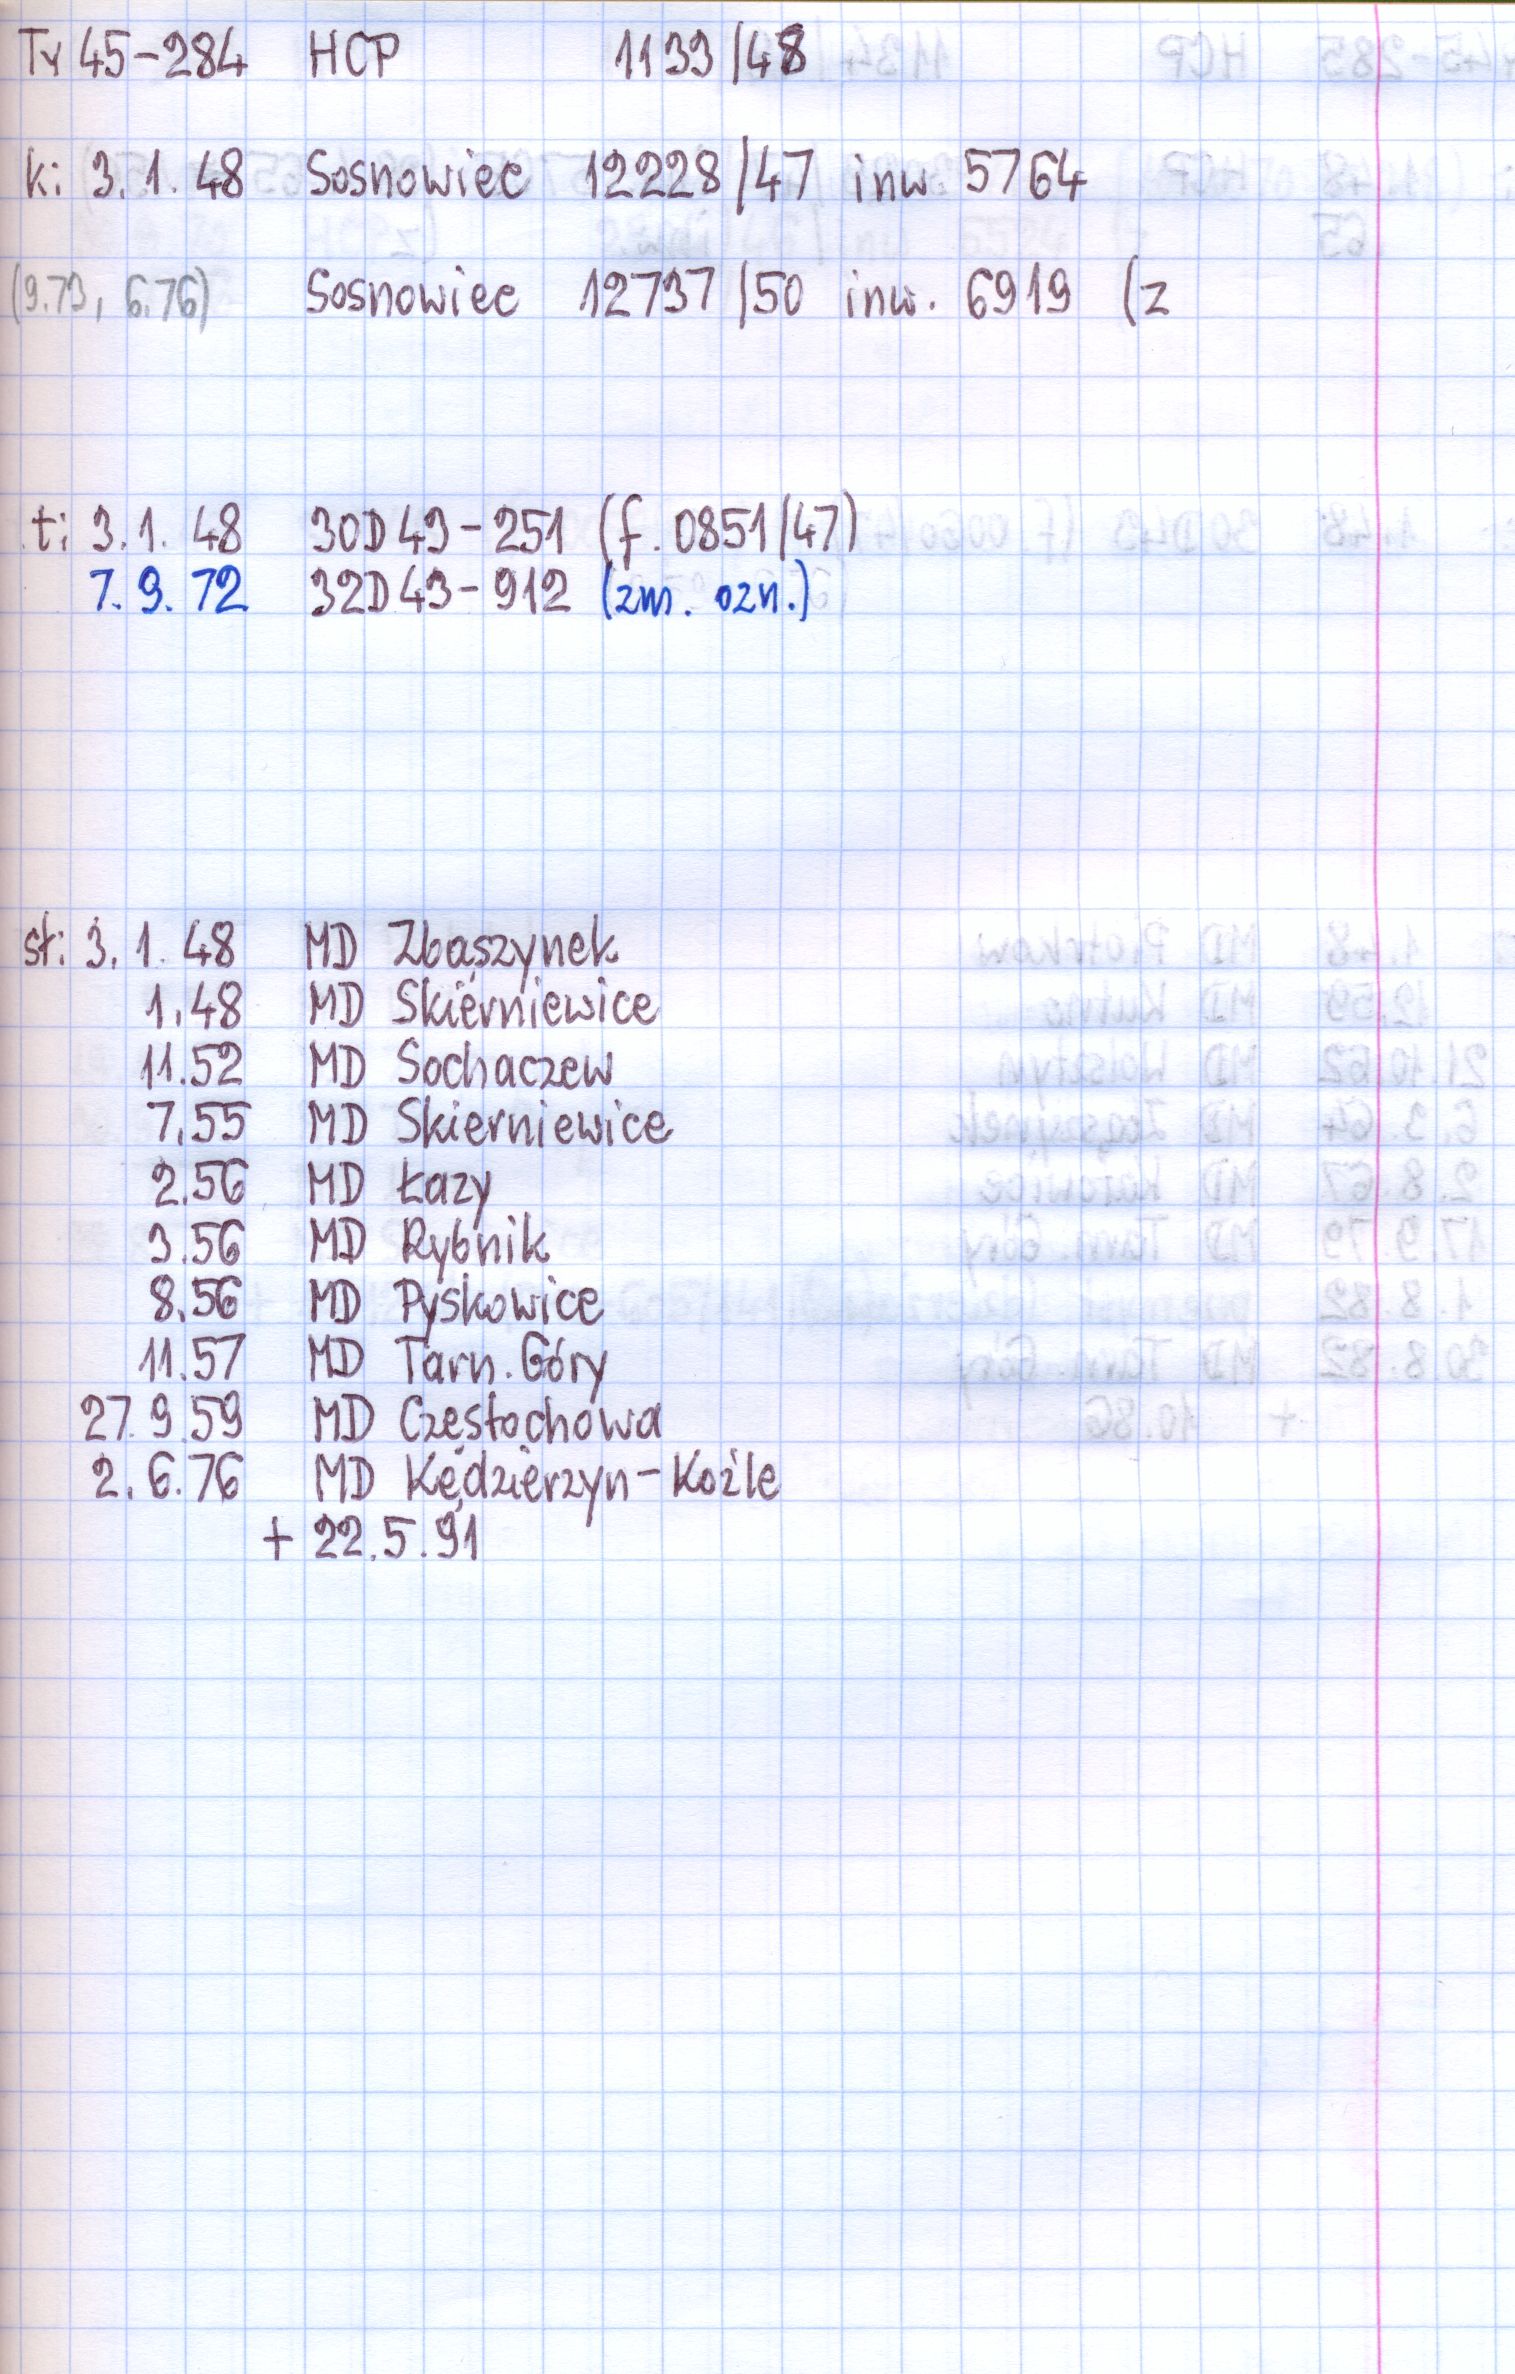 Ty 45-284 HCP 1133/48
k: 3.1.48 Sosnowiec 12228/47 inw. 5764
(9.73, 6.76) Sosnowiec 12737/50 inw. 6919 (z
t: 3.1.48 30D43-251 (f. 0851/47)
7.9.72 32D43-912 (zm. ozn.)
st: 3.1.48 MD Zbąszynek
1.48 MD Skierniewice
11.52 MD Sochaczew
7.55 MD Skierniewice
2.56 MD Łazy
3.56 MD Rybnik
8.56 MD Pyskowice
11.57 MD Tarn. Góry
27.9.59 MD Częstochowa
2.6.76 MD Kędzierzyn-Koźle
+ 22.5.91